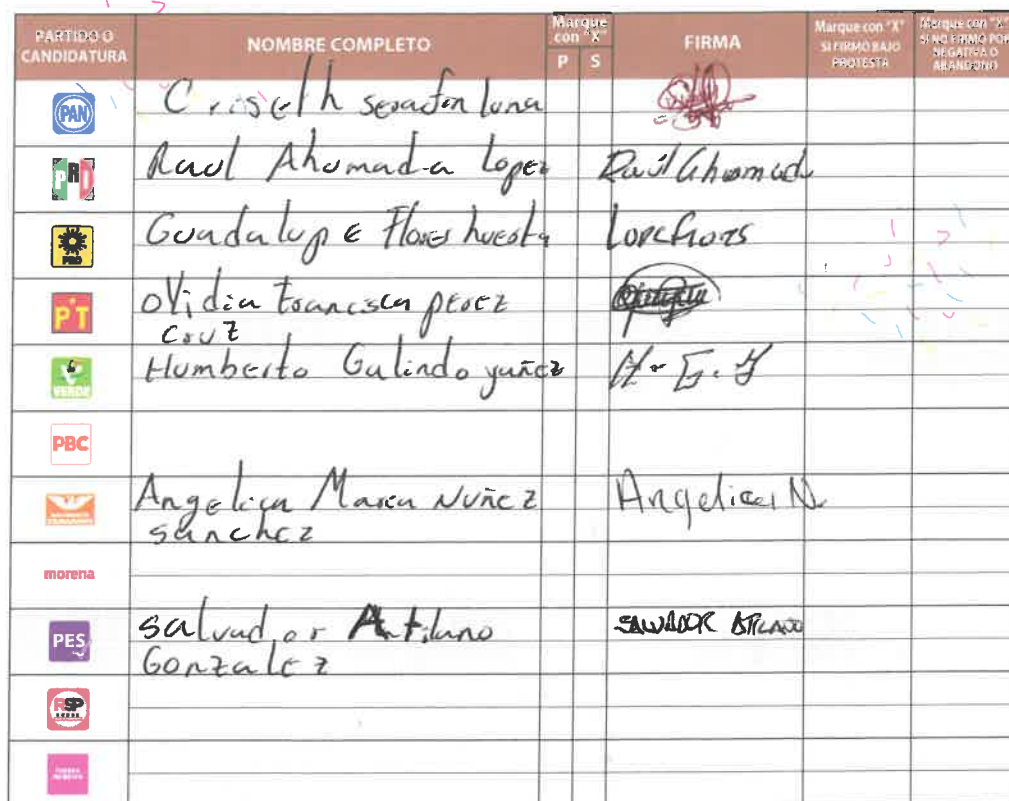 PARTIDO O CANDIDATURA
NOMBRE COMPLETO
Marque con "X"
P S
FIRMA
Marque con "X" SI FIRMÓ BAJO PROTESTA
Marque con "X" SI NO FIRMÓ POR NEGATIVA O ABANDONO
PAN Criselh serafin luna
PRI Raul Ahumada Lopez Raúl Ahumad
PRD Guadalupe Flores huesta
PT oVidia francisca perez
Cruz
VERDE Humberto Galindo yañez H. G. Y
PBC
Angelica Maria Nuñez Angelica N.
sanchez
morena
PES salvador Antilano SALVADOR ATILANO
Gonzalez
RSP